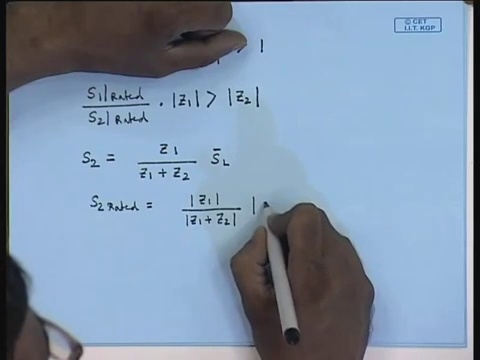 © CET
I.I.T. KGP
1
S₁|Rated / S₂|Rated · |Z₁| > |Z₂|
S₂ = Z₁ / (Z₁ + Z₂) S̄_L
S₂ Rated = |Z₁| / |Z₁ + Z₂| |